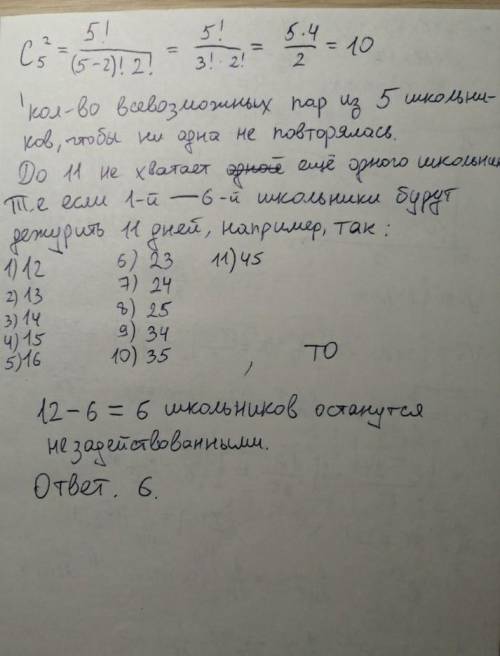 C₅² = 5! / (5-2)! 2! = 5! / 3! · 2! = 5·4 / 2 = 10
кол-во всевозможных пар из 5 школьни-
ков, чтобы ни одна не повторялась.
До 11 не хватает одной ещё одного школьник
Т.е если 1-й — 6-й школьники будут
дежурить 11 дней, например, так:
1) 12 6) 23 11) 45
2) 13 7) 24
3) 14 8) 25
4) 15 9) 34
5) 16 10) 35 , ТО
12 - 6 = 6 школьников останутся
незадействованными.
Ответ. 6.